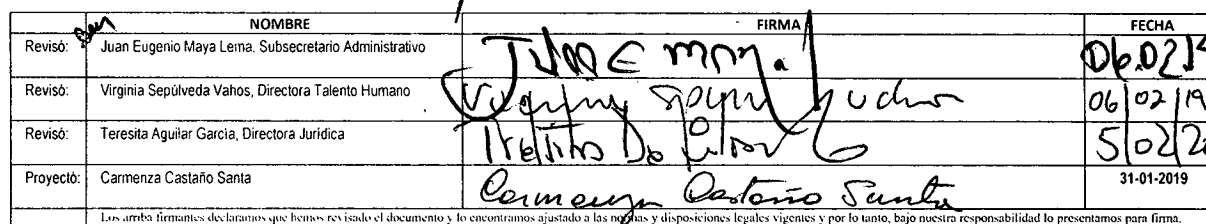 NOMBRE FIRMA FECHA
Revisó: Juan Eugenio Maya Lema, Subsecretario Administrativo 06.02.19
Revisó: Virginia Sepúlveda Vahos, Directora Talento Humano 06/02/19
Revisó: Teresita Aguilar García, Directora Jurídica 5/02/20
Proyectó: Carmenza Castaño Santa Carmenza Castaño Santa 31-01-2019
Los arriba firmantes declaramos que hemos revisado el documento y lo encontramos ajustado a las normas y disposiciones legales vigentes y por lo tanto, bajo nuestra responsabilidad lo presentamos para firma.